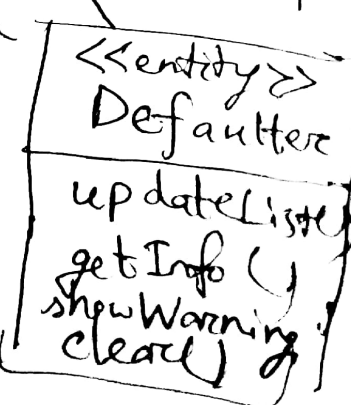 <<entity>>
Defaulter
updateList()
getInfo()
showWarning
clear()